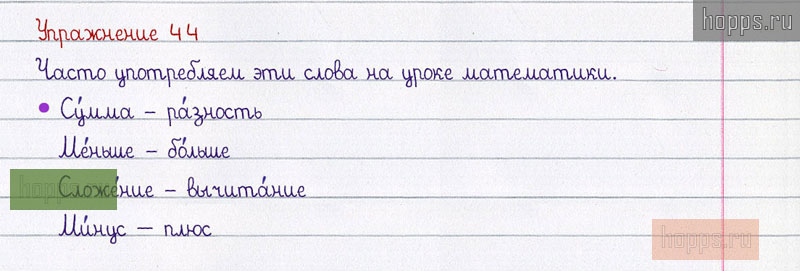 hopps.ru
Упражнение 44
Часто употребляем эти слова на уроке математики.
• Су́мма – ра́зность
Ме́ньше – бо́льше
hopps.ru
Сложе́ние – вычита́ние
Ми́нус – плюс
hopps.ru